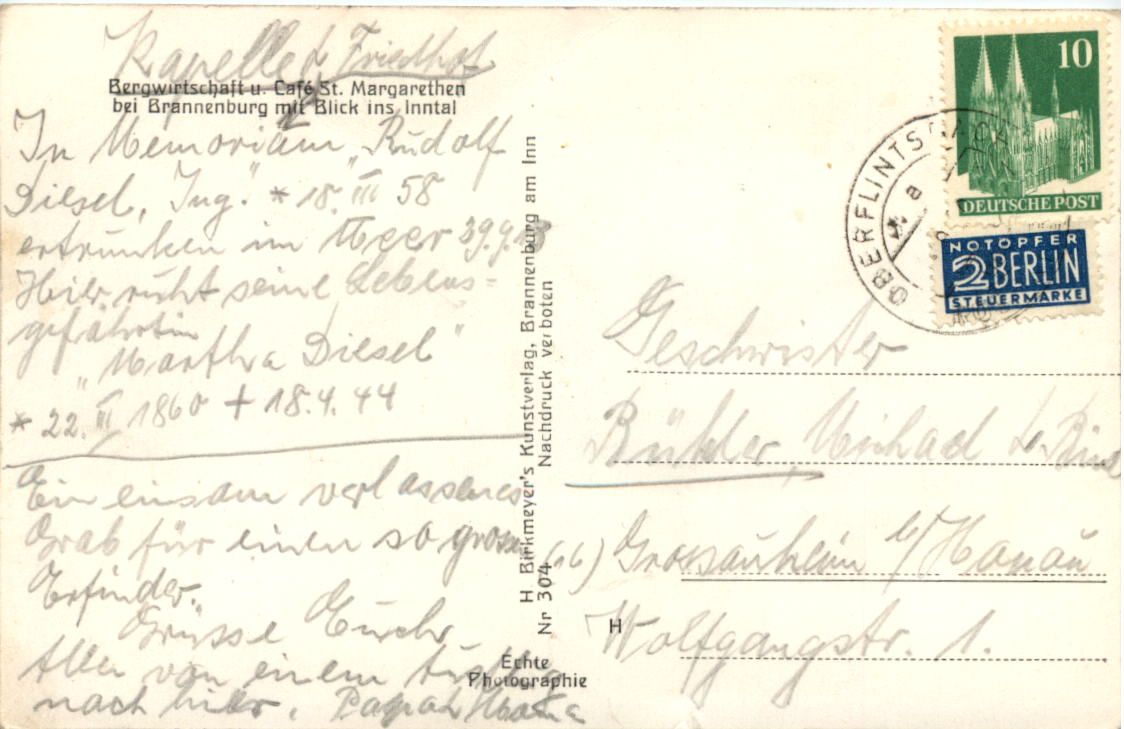 Kapelle u. Friedhof
Bergwirtschaft u. Café St. Margarethen
bei Brannenburg mit Blick ins Inntal
In Memoriam „Rudolf
Diesel, Ing." * 18. III 58
ertrunken im Meer 29.9.13
Hier ruht seine Lebens=
gefährtin
„Martha Diesel"
* 22. III 1860 + 18.4.44
Ein einsam verlassenes
Grab für einen so grossen
Erfinder.
Grüsse Euch
Allen von einem
nach hier. Papa
H Birkmeyer's Kunstverlag, Brannenburg am Inn
Nr 304 Nachdruck verboten
Echte
Photographie
10
DEUTSCHE POST
NOTOPFER
2 BERLIN
STEUERMARKE
OBERFLINTSBACH
a
Geschwister
Bühler, Michael
(16) Grossauheim b/Hanau
H
Wolfgangstr. 1.